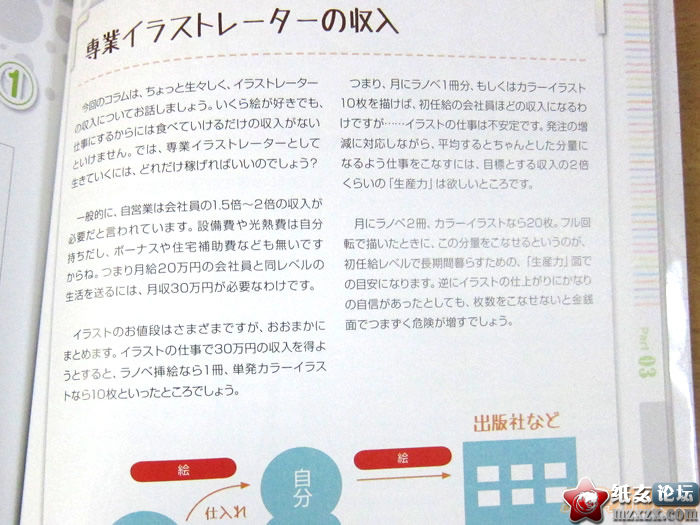 1
専業イラストレーターの収入
今回のコラムは、ちょっと生々しく、イラストレーター
の収入についてお話しましょう。いくら絵が好きでも、
仕事にするからには食べていけるだけの収入がない
といけません。では、専業イラストレーターとして
生きていくには、どれだけ稼げればいいのでしょう?
一般的に、自営業は会社員の1.5倍〜2倍の収入が
必要だと言われています。設備費や光熱費は自分
持ちだし、ボーナスや住宅補助費なども無いです
からね。つまり月給20万円の会社員と同レベルの
生活を送るには、月収30万円が必要なわけです。
イラストのお値段はさまざまですが、おおまかに
まとめます。イラストの仕事で30万円の収入を得よ
うとすると、ラノベ挿絵なら1冊、単発カラーイラス
トなら10枚といったところでしょう。
つまり、月にラノベ1冊分、もしくはカラーイラスト
10枚を描けば、初任給の会社員ほどの収入になるわ
けですが……イラストの仕事は不安定です。発注の増
減に対応しながら、平均するとちゃんとした分量に
なるよう仕事をこなすには、目標とする収入の2倍
くらいの「生産力」は欲しいところです。
月にラノベ2冊、カラーイラストなら20枚。フル回
転で描いたときに、この分量をこなせるというのが、
初任給レベルで長期間暮らすための、「生産力」面で
の目安になります。逆にイラストの仕上がりにかなり
の自信があったとしても、枚数をこなせないと金銭
面でつまずく危険が増すでしょう。
Part 03
絵
仕入れ
自分
絵
出版社など
纸玄论坛
mzxzx.com